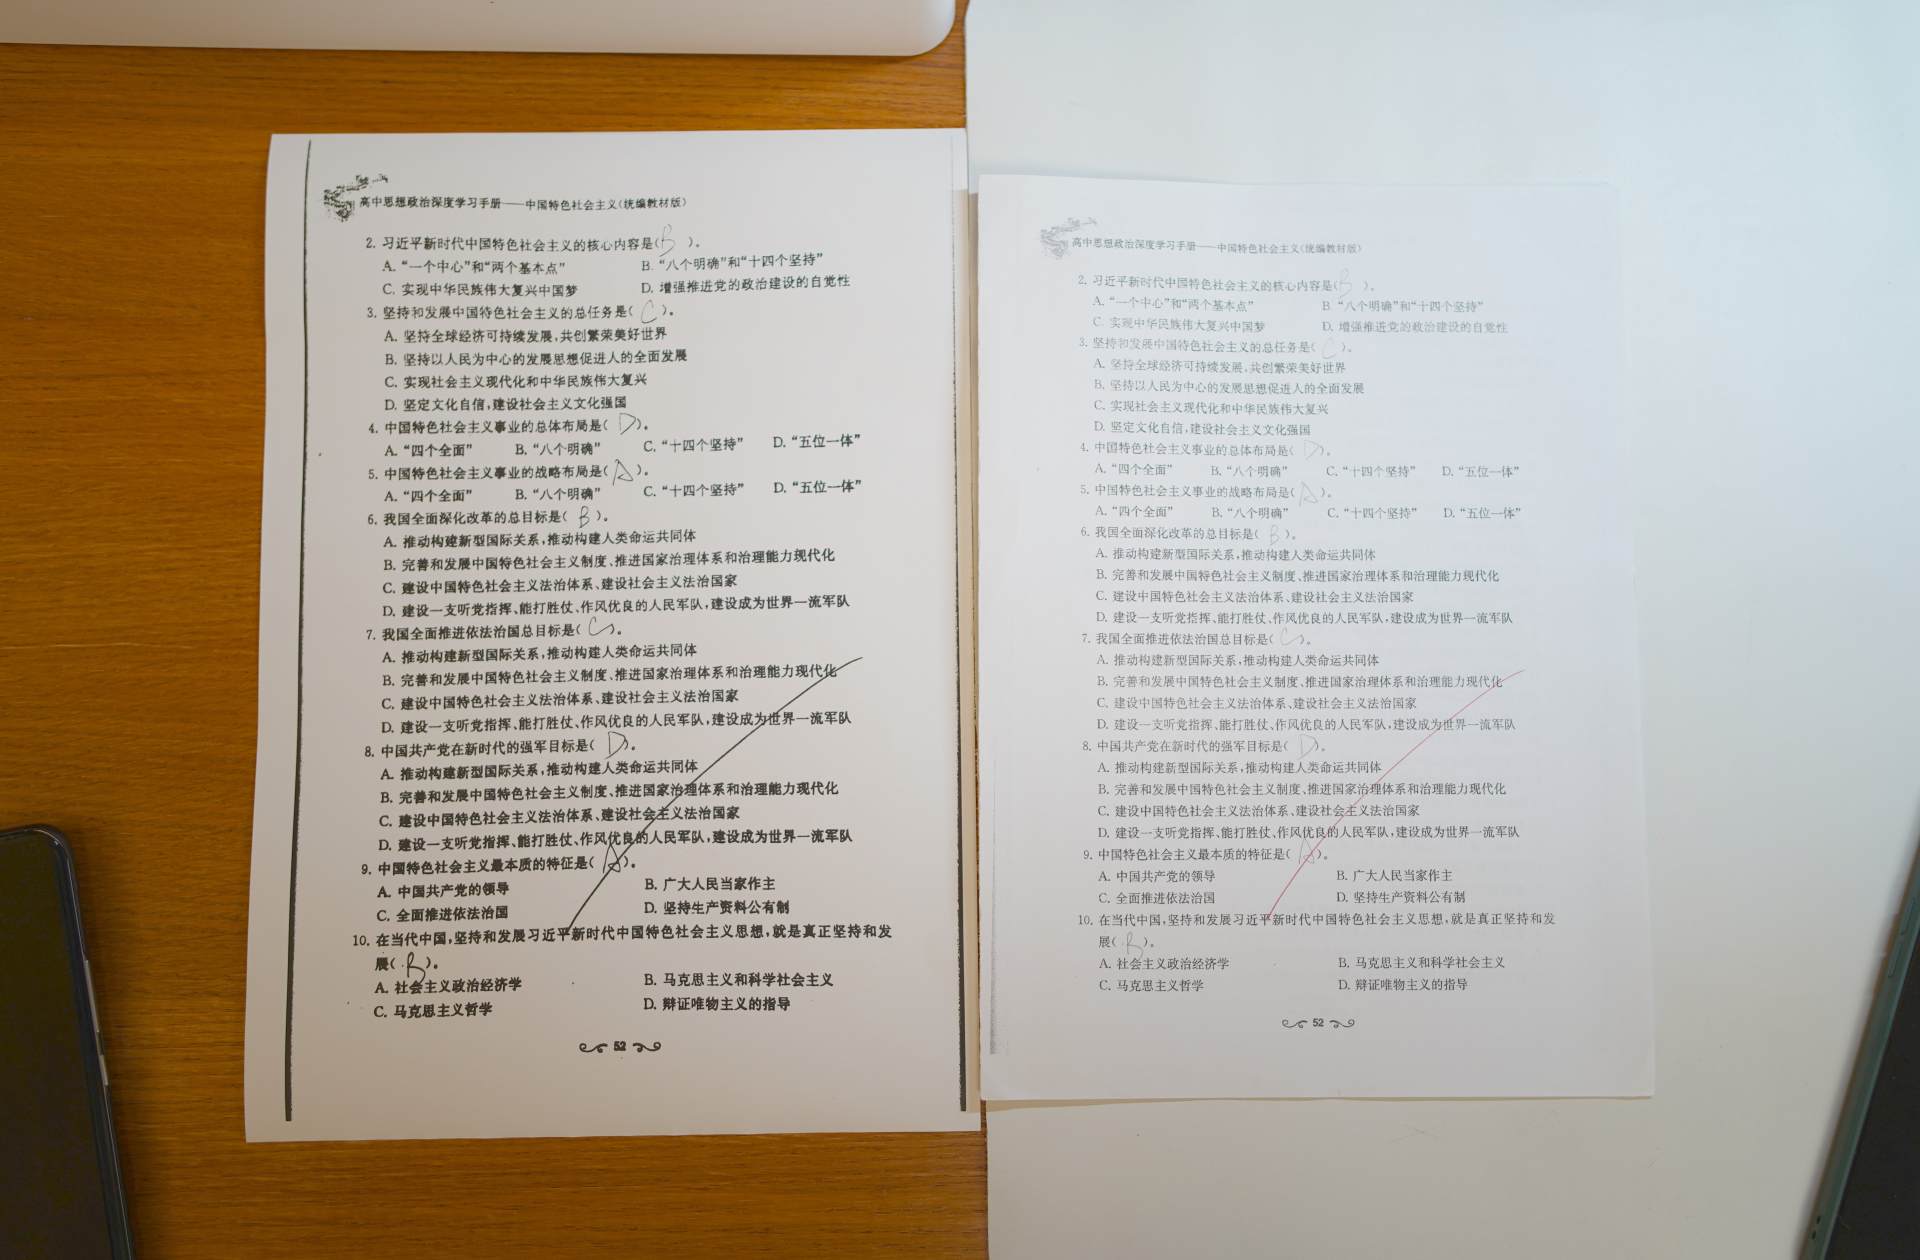 高中思想政治深度学习手册——中国特色社会主义(统编教材版)
2. 习近平新时代中国特色社会主义的核心内容是( B )。
A. “一个中心”和“两个基本点” B. “八个明确”和“十四个坚持”
C. 实现中华民族伟大复兴中国梦 D. 增强推进党的政治建设的自觉性
3. 坚持和发展中国特色社会主义的总任务是( C )。
A. 坚持全球经济可持续发展,共创繁荣美好世界
B. 坚持以人民为中心的发展思想促进人的全面发展
C. 实现社会主义现代化和中华民族伟大复兴
D. 坚定文化自信,建设社会主义文化强国
4. 中国特色社会主义事业的总体布局是( D )。
A. “四个全面” B. “八个明确” C. “十四个坚持” D. “五位一体”
5. 中国特色社会主义事业的战略布局是( A )。
A. “四个全面” B. “八个明确” C. “十四个坚持” D. “五位一体”
6. 我国全面深化改革的总目标是( B )。
A. 推动构建新型国际关系,推动构建人类命运共同体
B. 完善和发展中国特色社会主义制度、推进国家治理体系和治理能力现代化
C. 建设中国特色社会主义法治体系、建设社会主义法治国家
D. 建设一支听党指挥、能打胜仗、作风优良的人民军队,建设成为世界一流军队
7. 我国全面推进依法治国总目标是( C )。
A. 推动构建新型国际关系,推动构建人类命运共同体
B. 完善和发展中国特色社会主义制度、推进国家治理体系和治理能力现代化
C. 建设中国特色社会主义法治体系、建设社会主义法治国家
D. 建设一支听党指挥、能打胜仗、作风优良的人民军队,建设成为世界一流军队
8. 中国共产党在新时代的强军目标是( D )。
A. 推动构建新型国际关系,推动构建人类命运共同体
B. 完善和发展中国特色社会主义制度、推进国家治理体系和治理能力现代化
C. 建设中国特色社会主义法治体系、建设社会主义法治国家
D. 建设一支听党指挥、能打胜仗、作风优良的人民军队,建设成为世界一流军队
9. 中国特色社会主义最本质的特征是( A )。
A. 中国共产党的领导 B. 广大人民当家作主
C. 全面推进依法治国 D. 坚持生产资料公有制
10. 在当代中国,坚持和发展习近平新时代中国特色社会主义思想,就是真正坚持和发
展( B )。
A. 社会主义政治经济学 B. 马克思主义和科学社会主义
C. 马克思主义哲学 D. 辩证唯物主义的指导
52
高中思想政治深度学习手册——中国特色社会主义(统编教材版)
2. 习近平新时代中国特色社会主义的核心内容是( B )。
A. “一个中心”和“两个基本点” B. “八个明确”和“十四个坚持”
C. 实现中华民族伟大复兴中国梦 D. 增强推进党的政治建设的自觉性
3. 坚持和发展中国特色社会主义的总任务是( C )。
A. 坚持全球经济可持续发展,共创繁荣美好世界
B. 坚持以人民为中心的发展思想促进人的全面发展
C. 实现社会主义现代化和中华民族伟大复兴
D. 坚定文化自信,建设社会主义文化强国
4. 中国特色社会主义事业的总体布局是( D )。
A. “四个全面” B. “八个明确” C. “十四个坚持” D. “五位一体”
5. 中国特色社会主义事业的战略布局是( A )。
A. “四个全面” B. “八个明确” C. “十四个坚持” D. “五位一体”
6. 我国全面深化改革的总目标是( B )。
A. 推动构建新型国际关系,推动构建人类命运共同体
B. 完善和发展中国特色社会主义制度、推进国家治理体系和治理能力现代化
C. 建设中国特色社会主义法治体系、建设社会主义法治国家
D. 建设一支听党指挥、能打胜仗、作风优良的人民军队,建设成为世界一流军队
7. 我国全面推进依法治国总目标是( C )。
A. 推动构建新型国际关系,推动构建人类命运共同体
B. 完善和发展中国特色社会主义制度、推进国家治理体系和治理能力现代化
C. 建设中国特色社会主义法治体系、建设社会主义法治国家
D. 建设一支听党指挥、能打胜仗、作风优良的人民军队,建设成为世界一流军队
8. 中国共产党在新时代的强军目标是( D )。
A. 推动构建新型国际关系,推动构建人类命运共同体
B. 完善和发展中国特色社会主义制度、推进国家治理体系和治理能力现代化
C. 建设中国特色社会主义法治体系、建设社会主义法治国家
D. 建设一支听党指挥、能打胜仗、作风优良的人民军队,建设成为世界一流军队
9. 中国特色社会主义最本质的特征是( A )。
A. 中国共产党的领导 B. 广大人民当家作主
C. 全面推进依法治国 D. 坚持生产资料公有制
10. 在当代中国,坚持和发展习近平新时代中国特色社会主义思想,就是真正坚持和发
展( B )。
A. 社会主义政治经济学 B. 马克思主义和科学社会主义
C. 马克思主义哲学 D. 辩证唯物主义的指导
52